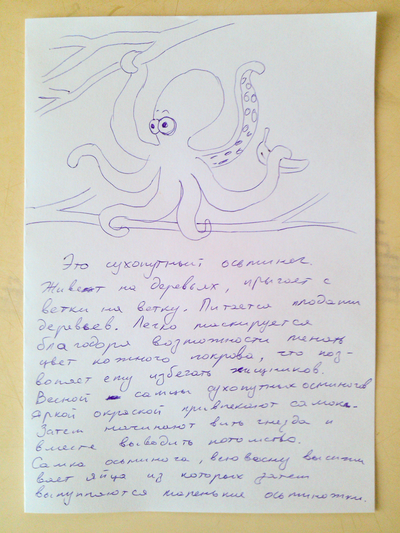 Это сухопутный осьминог.
Живет на деревьях, прыгает с
ветки на ветку. Питается плодами
деревьев. Легко маскируется
благодоря возможности менять
цвет кожного покрова, что поз-
воляет ему избегать хищников.
Весной самцы сухопутных осьминогов
яркой окраской привлекают самок.
Затем начинают вить гнезда и
вместе выводить потомство.
Самка осьминога, всю весну высижи
вает яйца из которых затем
вылупляются маленькие осьминожки.